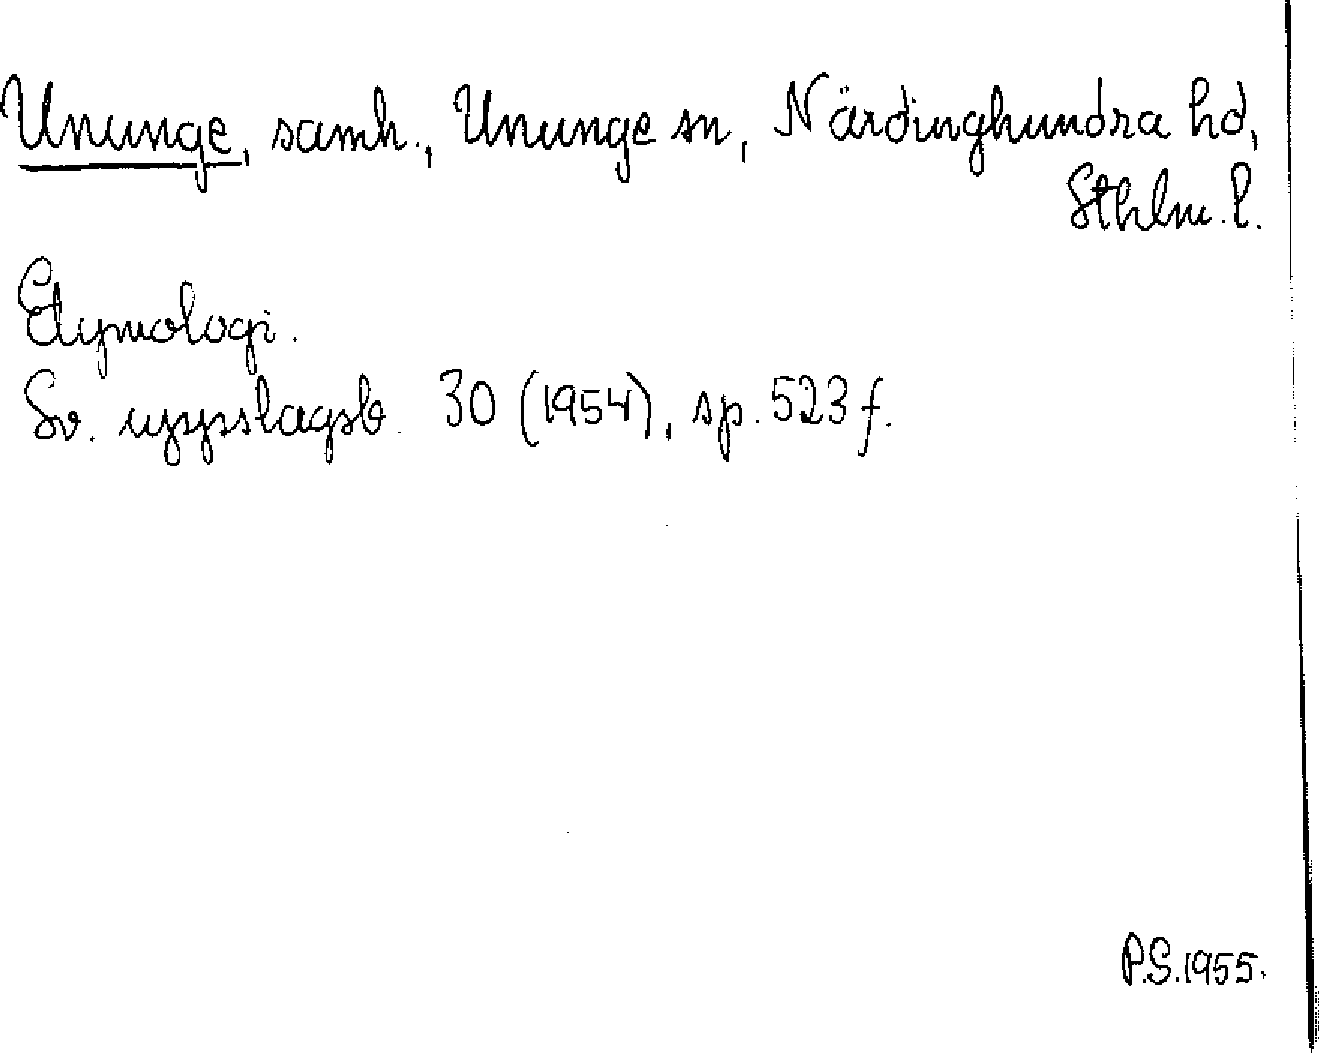 Ununge, samh., Ununge sn, Närdinghundra hd,
Sthlm. l.
Etymologi.
Sv. uppslagsb. 30 (1954), sp. 523 f.
P.S. 1955.